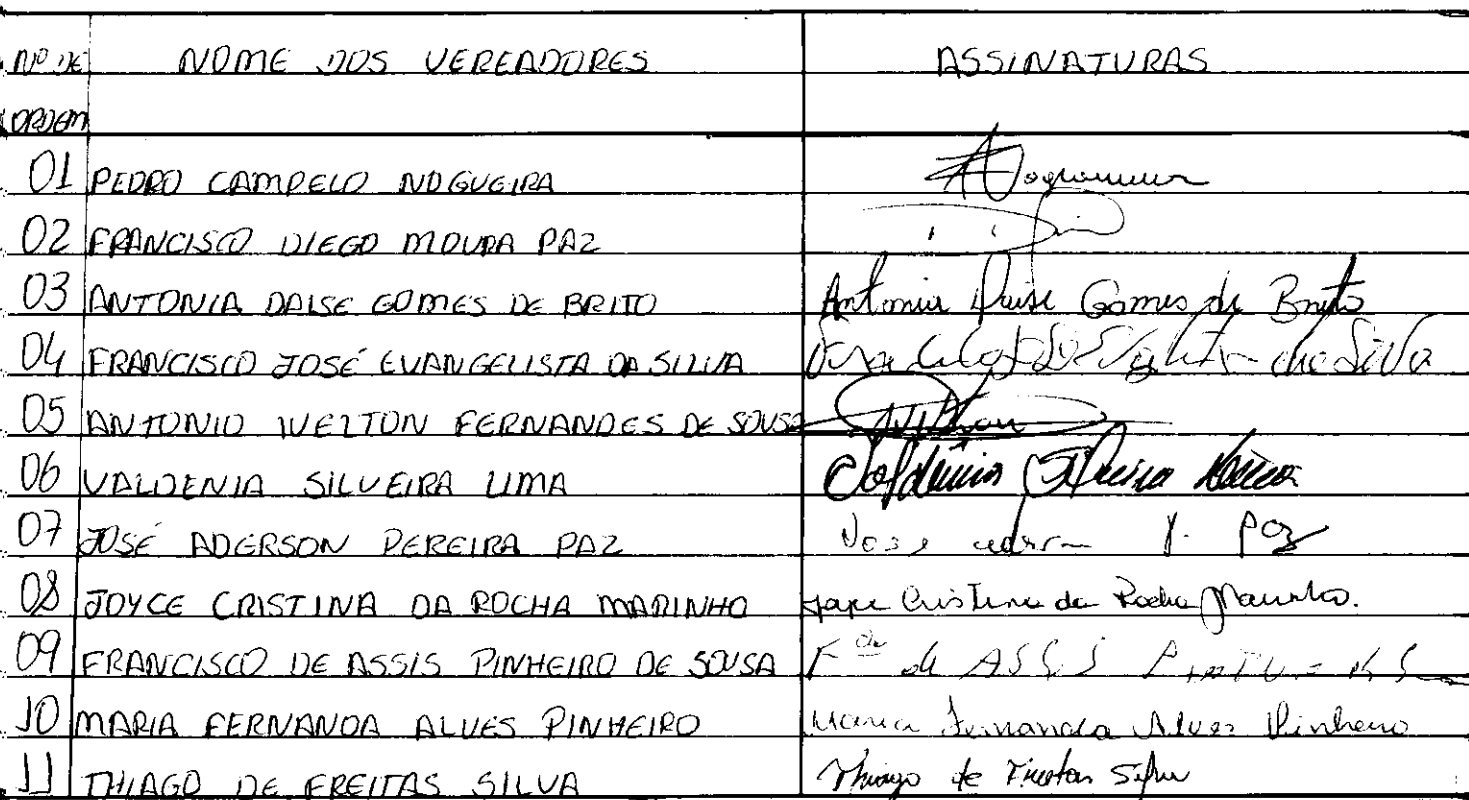 Nº DE NOME DOS VEREADORES ASSINATURAS
ORDEM
01 PEDRO CAMPELO NOGUEIRA
02 FRANCISCO DIEGO MOURA PAZ
03 ANTONIA DAISE GOMES DE BRITO Antonia Daise Gomes de Brito
04 FRANCISCO JOSÉ EVANGELISTA DA SILVA da Silva
05 ANTONIO WELTON FERNANDES DE SOUSA
06 VALDENIA SILVEIRA LIMA Valdenia Silveira Lima
07 JOSÉ ADERSON PEREIRA PAZ Jose P. Paz
08 JOYCE CRISTINA DA ROCHA MARINHO Joyce Cristina da Rocha Marinho.
09 FRANCISCO DE ASSIS PINHEIRO DE SOUSA Fco de ASSIS
10 MARIA FERNANDA ALVES PINHEIRO Maria Fernanda Alves Pinheiro
11 THIAGO DE FREITAS SILVA Thiago de Freitas Silva